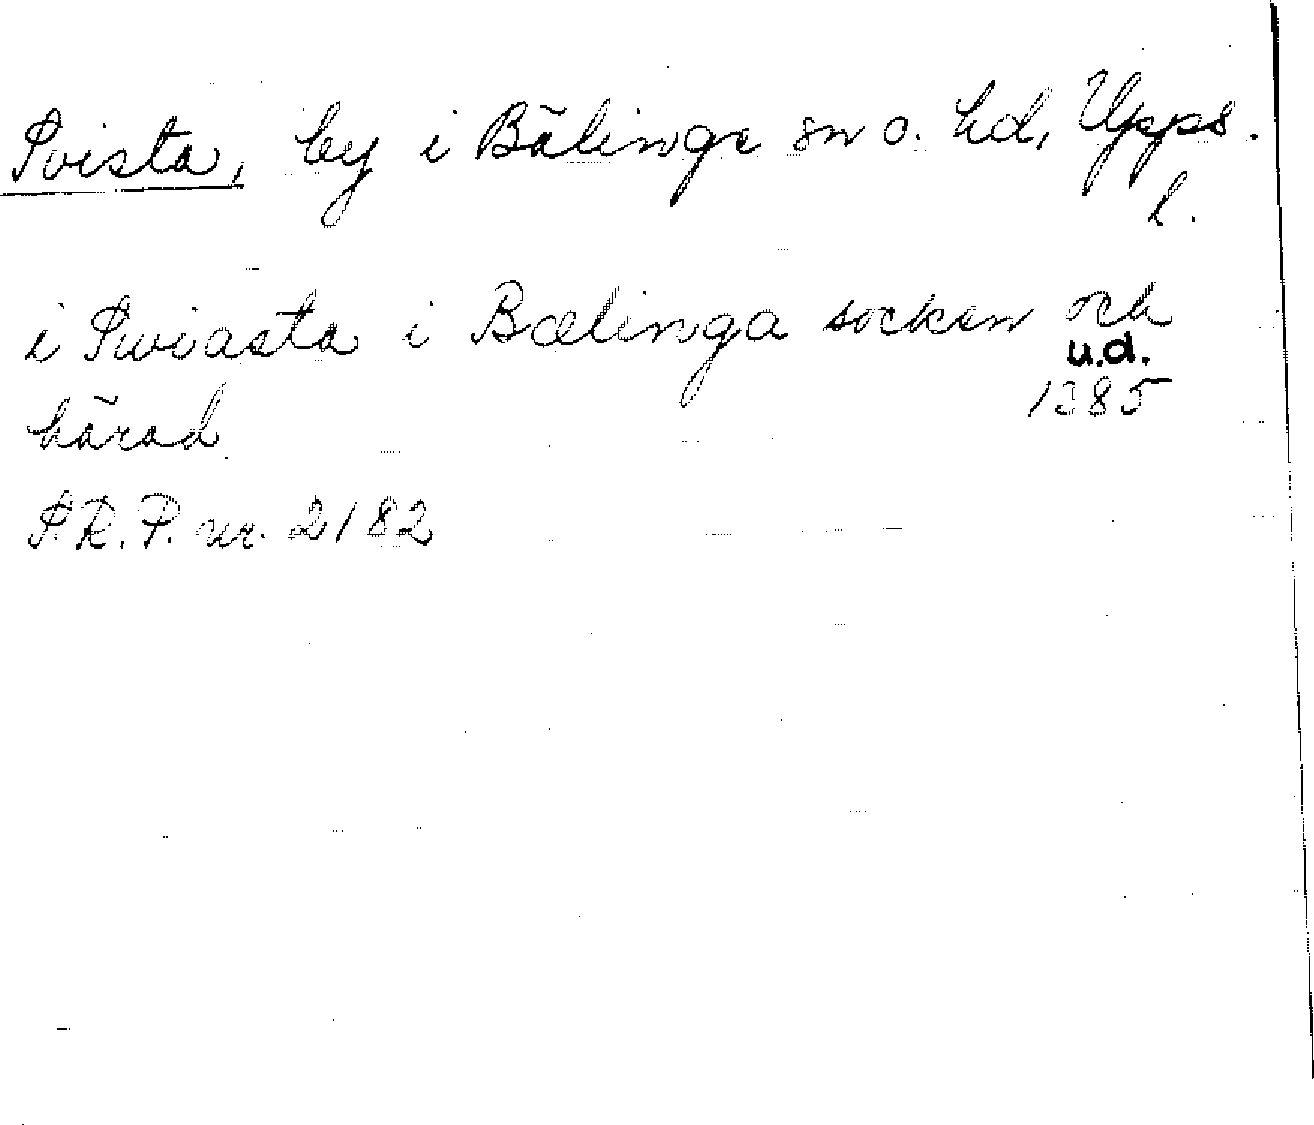 Svista, by i Bälinge sn o. hd, Upps.
l.
i Swiasta i Bælinga socken och
u.d.
härad 1385
S.R.P. nr. 2182